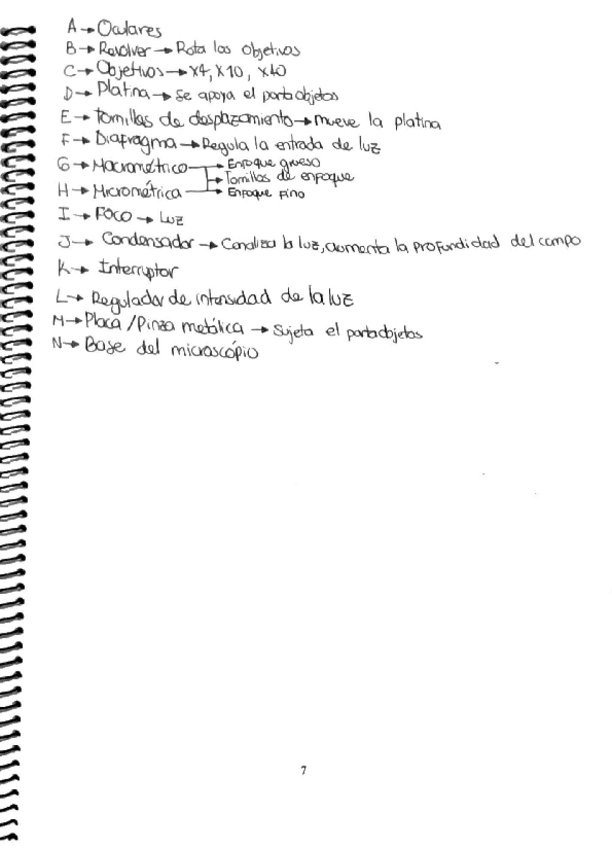 A → Oculares
B → Revolver → Rota los objetivos
C → Objetivos → x4, x10, x40
D → Platina → Se apoya el portaobjetos
E → Tornillos de desplazamiento → mueve la platina
F → Diafragma → Regula la entrada de luz
G → Macrométrico → Enfoque grueso
→ Tornillos de enfoque
H → Micrométrica → Enfoque fino
I → Foco → Luz
J → Condensador → Canaliza la luz, aumenta la profundidad del campo
K → Interruptor
L → Regulador de intensidad de la luz
M → Placa / Pinza metálica → Sujeta el portaobjetos
N → Base del microscópio
7